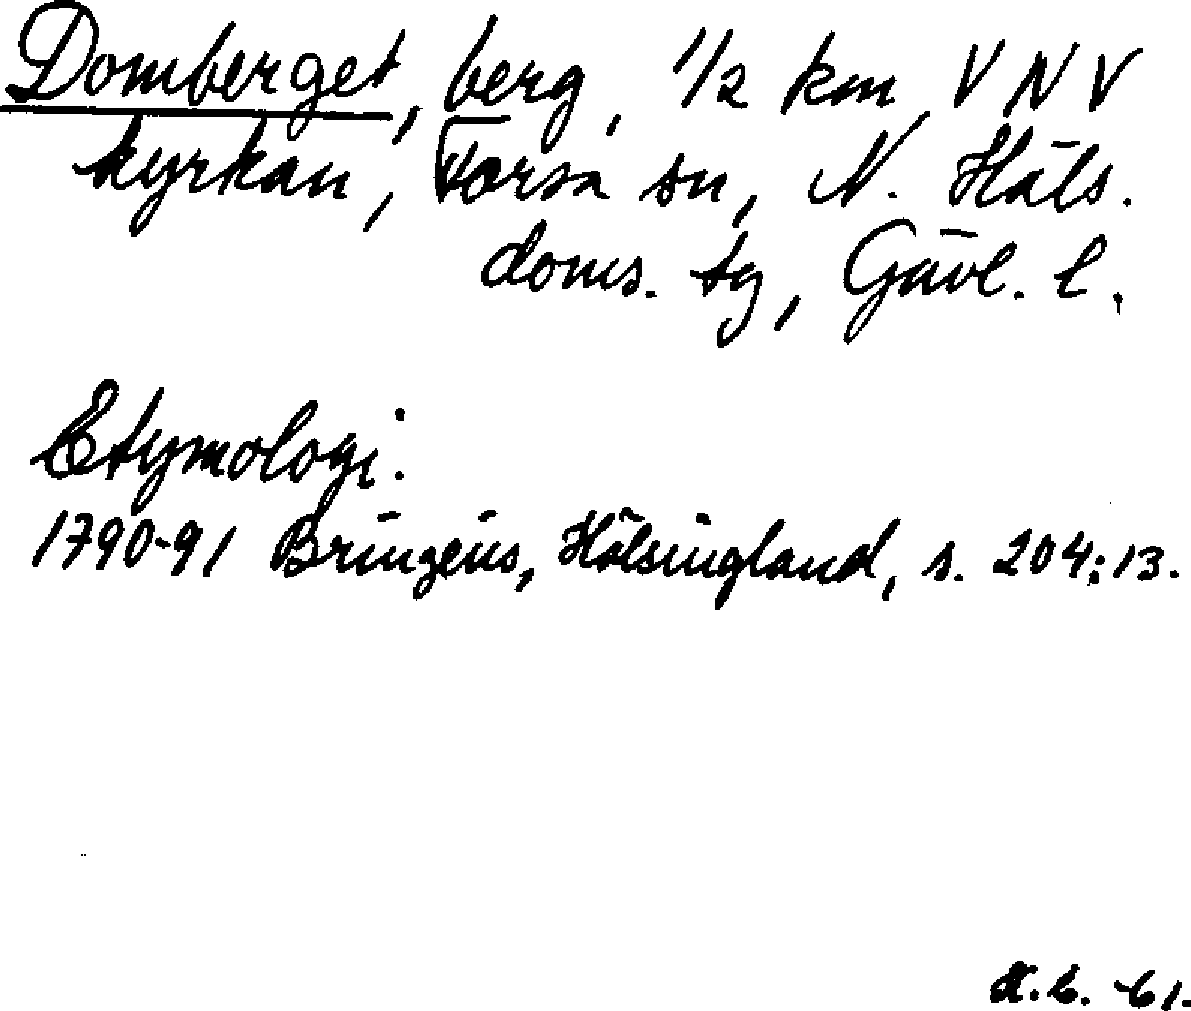 Domberget, berg, 1/2 km VNV
kyrkan, Forsa sn, N. Häls.
doms. tg, Gävl. l.
Etymologi:
1790-91 Brüzeüs, Hälsingland, s. 204:13.
-61.